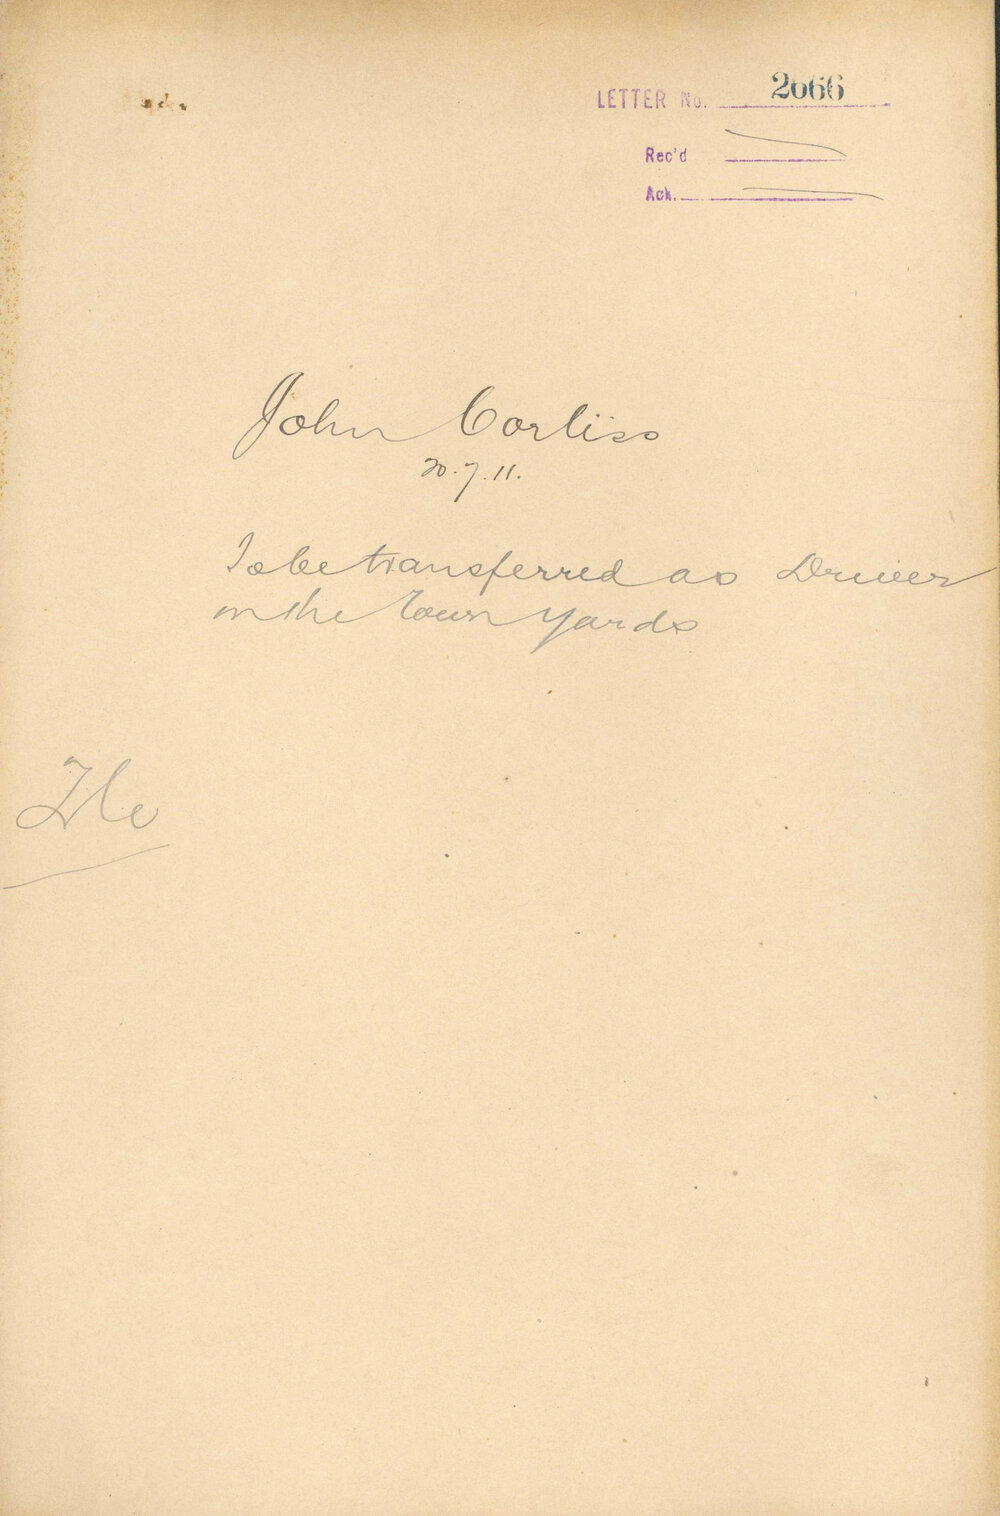 LETTER No. 2066
Rec'd
Ack.
John Corliss
20.7.11.
To be transferred as Driver
in the Town Yards